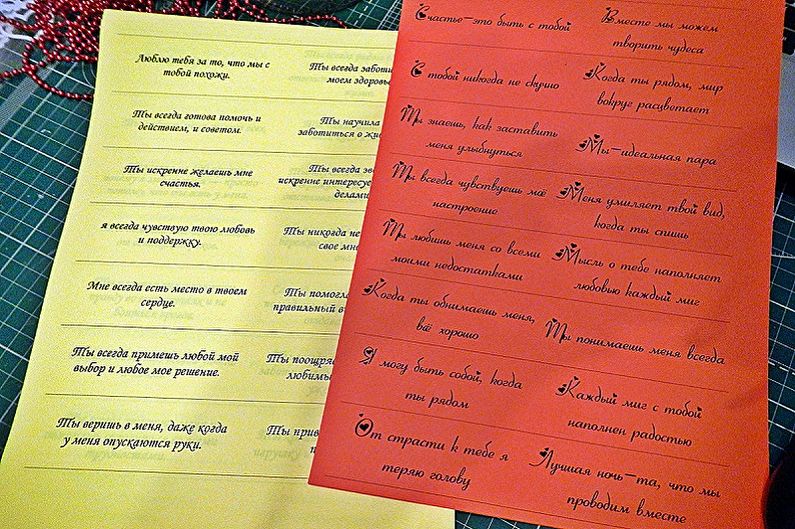 Люблю тебя за то, что мы с
тобой похожи.
Ты всегда готова помочь и
действием, и советом.
Ты искренне желаешь мне
счастья.
я всегда чувствую твою любовь
и поддержку.
Мне всегда есть место в твоем
сердце.
Ты всегда примешь любой мой
выбор и любое мое решение.
Ты веришь в меня, даже когда
у меня опускаются руки.
Ты всегда
моем
Ты научила
заботиться о
Ты всегда
искренне
Ты никогда не
свое
Ты
правильный
Ты
Ты
Счастье-это быть с тобой
С тобой никогда не скучно
Ты знаешь, как заставить
меня улыбнуться
Ты всегда чувствуешь моё
настроение
Ты любишь меня со всеми
моими недостатками
Когда ты обнимаешь меня,
всё хорошо
Я могу быть собой, когда
ты рядом
От страсти к тебе я
теряю голову
Вместе мы можем
творить чудеса
Когда ты рядом, мир
вокруг расцветает
Мы-идеальная пара
Меня умиляет твой вид,
когда ты спишь
Мысль о тебе наполняет
любовью каждый миг
Ты понимаешь меня всегда
Каждый миг с тобой
наполнен радостью
Лучшая ночь-та, что мы
проводим вместе